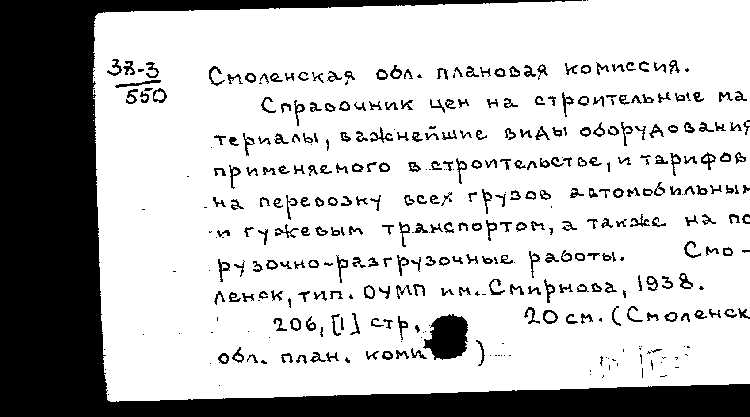 38-3
550
Смоленская обл. плановая комиссия.
Справочник цен на строительные ма
териалы, важнейшие виды оборудования
применяемого в строительстве, и тарифов
на перевозку всех грузов автомобильным
и гужевым транспортом, а также на по
рузочно-разгрузочные работы. Смо-
ленск, тип. ОУМП им. Смирнова, 1938.
206, [1] стр. 20 см. (Смоленск
обл. план. коми )